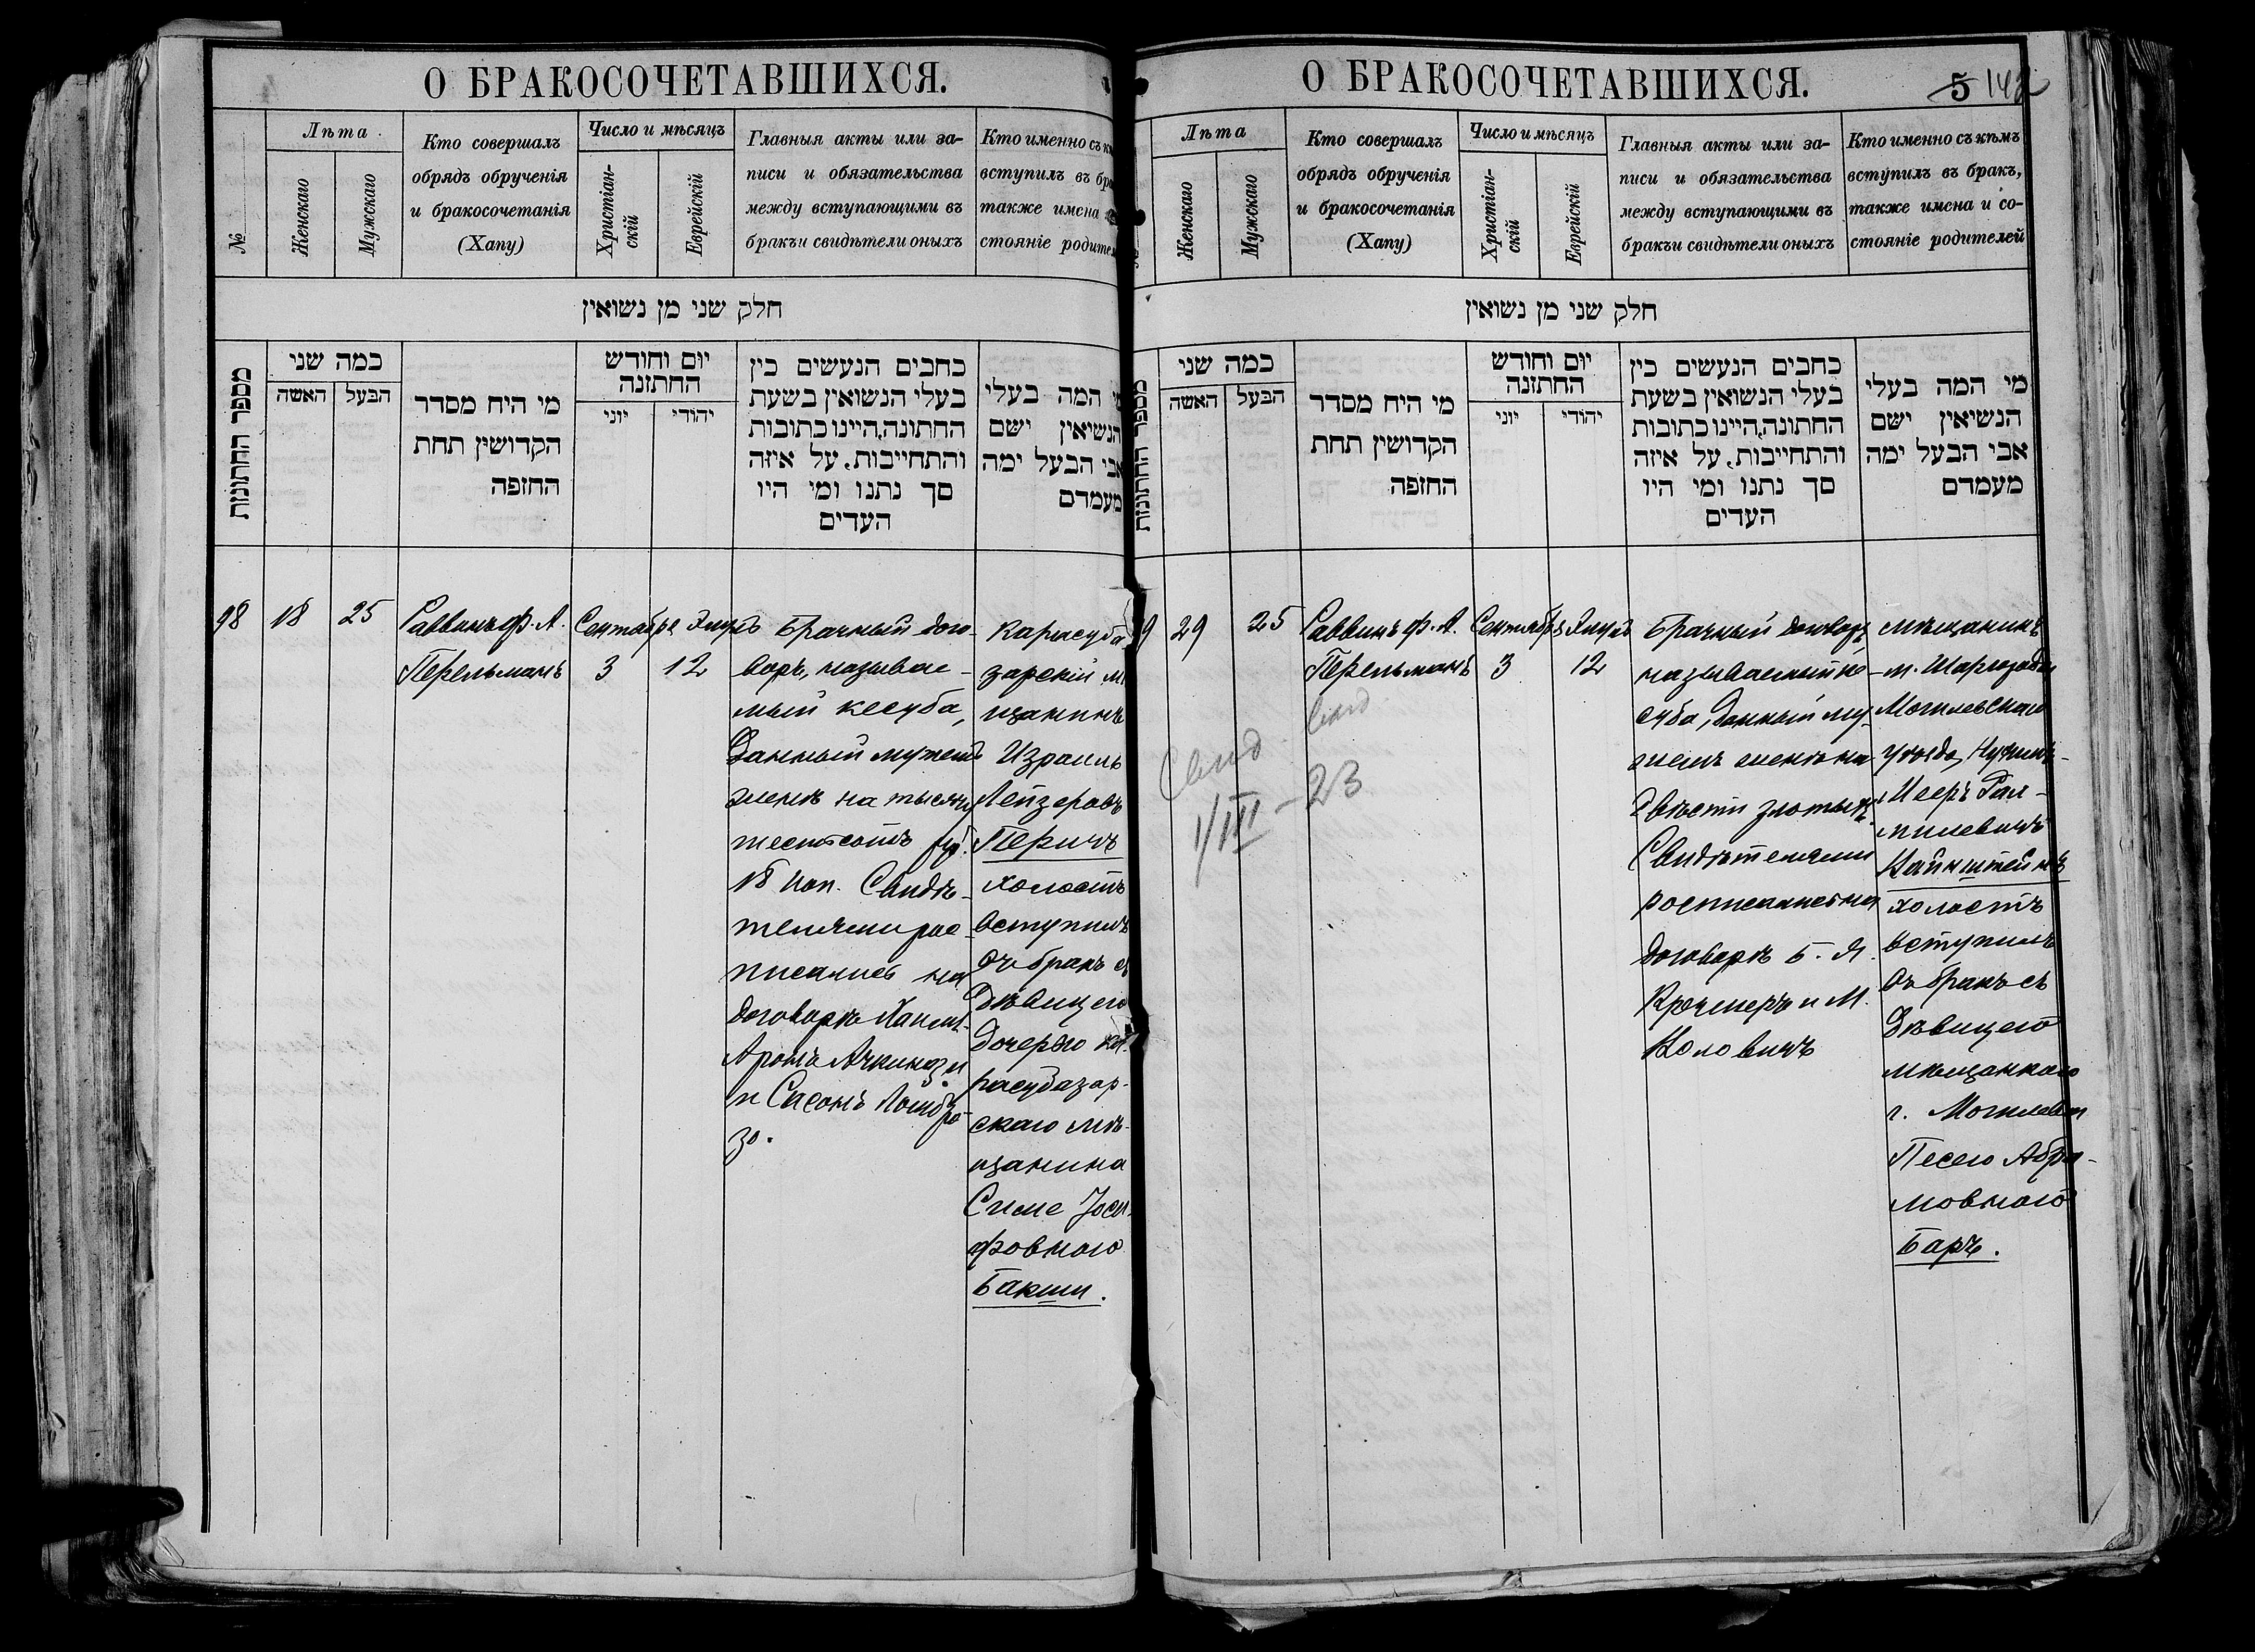 О БРАКОСОЧЕТАВШИХСЯ.
№
Лѣта
Женскаго
Мужскаго
Кто совершалъ
обрядъ обрученія
и бракосочетанія
(Хапу)
Число и мѣсяцъ
Христіан-
скій
Еврейскій
Главныя акты или за-
писи и обязательства
между вступающими въ
бракъ и свидѣтели оныхъ
Кто именно съ
вступилъ въ
также имена
стояніе
חלק שני מן נשואין
מספר החתונות
כמה שני
האשה
הבעל
מי היח מסדר
הקדושין תחת
החופה
יום וחודש
החתונה
יוני
יהודי
כתבים הנעשים בין
בעלי הנשואין בשעת
החתונה, היינו כתובות
והתחייבות, על איזה
סך נתנו ומי היו
העדים
המה בעלי
הנשיאין ישם
אבי הבעל ימה
מעמדם
98
18
25
Раввинъ Ф. А.
Перельманъ
Сентября
3
Элулъ
12
Брачный дого-
воръ, называе-
мый кесуба,
данный мужемъ
женѣ на тысячу
шестьсотъ руб.
18 коп. Свидѣ-
телями рос-
писались на
договорѣ
Аронъ Ачкинази
и Сисонъ Ломбро-
зо.
Карасуба
зарскій
щанинъ
Израиль
Лейзеровъ
Перичъ
холостъ
вступилъ
въ бракъ съ
дѣвицею
дочерью ка-
расубазар-
скаго мѣ-
щанина
Симе Іоси-
фовною
Бакши.
О БРАКОСОЧЕТАВШИХСЯ.
5 142
Лѣта
Женскаго
Мужскаго
Кто совершалъ
обрядъ обрученія
и бракосочетанія
(Хапу)
Число и мѣсяцъ
Христіан-
скій
Еврейскій
Главныя акты или за-
писи и обязательства
между вступающими въ
бракъ и свидѣтели оныхъ
Кто именно съ кѣмъ
вступилъ въ бракъ,
также имена и со-
стояніе родителей
חלק שני מן נשואין
מספר החתונות
כמה שני
האשה
הבעל
מי היח מסדר
הקדושין תחת
החופה
יום וחודש
החתונה
יוני
יהודי
כתבים הנעשים בין
בעלי הנשואין בשעת
החתונה, היינו כתובות
והתחייבות, על איזה
סך נתנו ומי היו
העדים
מי המה בעלי
הנשיאין ישם
אבי הבעל ימה
מעמדם
9
29
25
Раввинъ Ф. А.
Перельманъ
Сентября
3
Элулъ
12
Брачный договоръ
называемый ке-
суба, данный му-
жемъ женѣ на
двѣсти злотыхъ.
Свидѣтелями
росписались на
договорѣ Б. Я.
Крочмеръ и М.
Коловичъ
мѣщанинъ
м. Шаргородъ
Могилевскаго
уѣзда,
Мееръ
милевичъ
Вайнштейнъ
холостъ
вступилъ
въ бракъ съ
дѣвицею
мѣщанкою
г. Могилева
Песею Абра-
мовною
Баръ.
1/III - 23